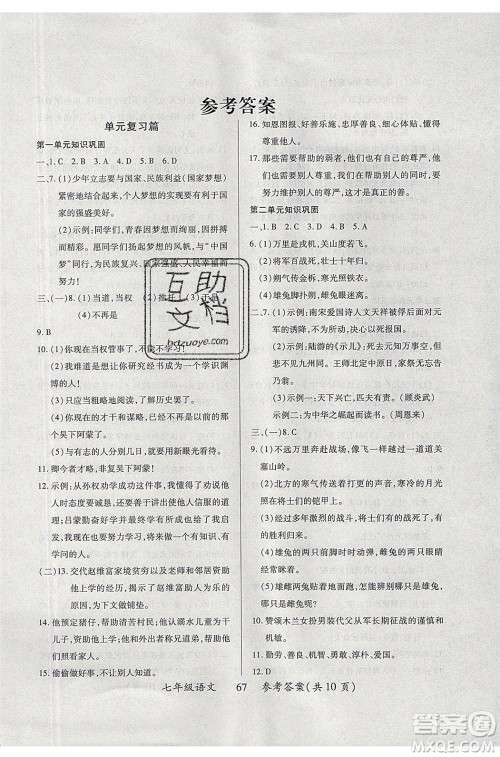 参考答案
单元复习篇
第一单元知识巩固
一、1. C 2. B 3. A 4. D 5. B 6. D
二、7. (1)少年立志要与国家、民族利益(国家梦想)
紧密地结合起来,个人梦想的实现有利于国
家的强盛美好。
(2)示例:同学们,青春因梦想而美好,国家
因梦想而强盛。愿同学们乘着实现“中国
梦”的时代风帆,为民族复兴、人民幸福而
努力学习!
三、(一)8. (1)当道,当权 (2)推托 (3)于是
(4)不再是
9. B
10. (1)你现在当权管事了,不能不学习!
(2)我难道是想让你研究经书成为一个学识渊
博的人吗!
(3)只应当粗略地阅读,了解历史罢了。
(4)以你现在的才干和谋略,不再是以前的那
个吴下阿蒙了!
(5)与有志的人朋友分别后,要用新眼光看待。
11. 卿今者才略,非复吴下阿蒙!
12. 示例:从孙权劝学成功这件事,我得到的启
发是:善劝者能使他人信服而增强语言的说
服力;吕蒙勤奋好学并卓有成效,给我们的
启发是:人要善于听取别人的意见,努力学
习,学以致用。
(二)13. 交代赵维富家境贫穷以及老师和邻居资助
他上学的经历,为下文写赵维富助人为乐的
垫、为下文做铺垫。
14. 他预定猪仔,帮助清贫的人;他认滴水儿为干
儿子,实际上是为了帮助这对孤儿寡母,资助
他上学。
15. 偷偷做好事,不让别人知道。
16. 知恩图报、好善乐施、忠厚善良、细心体贴、懂得
尊重人。
17. 那些有困难的人,同样有着强烈的尊严,所以
帮助别人的时候,不要忘了尊重别人,更要努
力维护别人的尊严,这才是真正的善。
第二单元知识巩固
一、1. C 2. B 3. A 4. D 5. B
二、6. (1)万里赴戎机,关山度若飞。
(2)将军百战死,壮士十年归。
(3)朔气传金柝,寒光照铁衣。
(4)雄兔脚扑朔,雌兔眼迷离。
7. (1)示例:南宋爱国诗人文天祥被俘后,面对元
军的诱降,不屑一顾,决不变节。
(2)示例:陆游的《示儿》:死去元知万事空,但
悲不见九州同。王师北定中原日,家祭无忘告
乃翁。
示例一:天下兴亡,匹夫有责。(顾炎武)
示例二:为中华之崛起而读书。(周恩来)
三、(一)8. C
9. (1)不远万里奔赴战场,像飞一样地越过一道道关
塞山岭。
(2)北方的寒气传送着打更的声音,寒冷的月光
映照着将士们的铠甲。
(3)将士们身经百战,有的战死沙场,有的
胜利归来。
(4)雄雌两只兔子一起并排着跑,怎能分辨
哪只是雄兔哪只是雌兔呢?
10. 赞颂木兰女扮男装代父从军长期征战的谨慎和
机敏。
11. 勤劳、善良、勇敢、机智、不慕名利。
12. D
七年级语文 67 参考答案(共10页)
互助
文档
bdzuoye.com
作业精灵
MXQE.COM